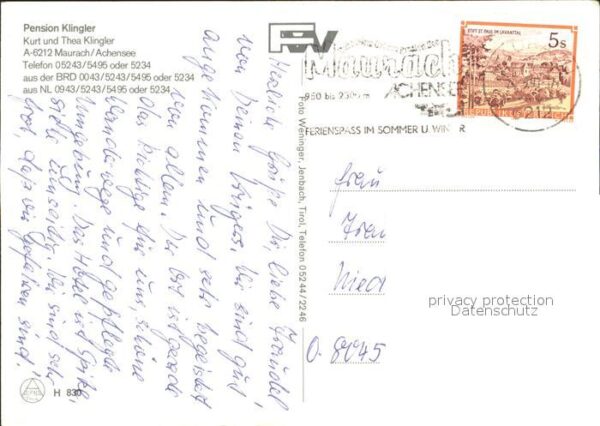 Pension Klingler
Kurt und Thea Klingler
A-6212 Maurach/Achensee
Telefon 05243/5495 oder 5234
aus der BRD 0043/5243/5495 oder 5234
aus NL 0943/5243/5495 oder 5234
Maurach
ACHENSEE
950 bis 2000 m
FERIENSPASS IM SOMMER U. WINTER
STIFT ST. PAUL IM LAVANTTAL
5s
REPUBLIK
6212
Foto Weninger, Jenbach, Tirol, Telefon 05244/2246
Herzliche Grüße Dir, liebe
von Deinen Wir sind gut
angekommen und sehr begeistert
von allem. Der Ort ist gerade
das Richtige für uns, schöne
Wanderwege und gepflegte
Umgebung. Das Hotel ist Spitze,
Wir sind sehr
froh, daß wir gefahren sind!
Frau
O. 8045
H 830
privacy protection
Datenschutz